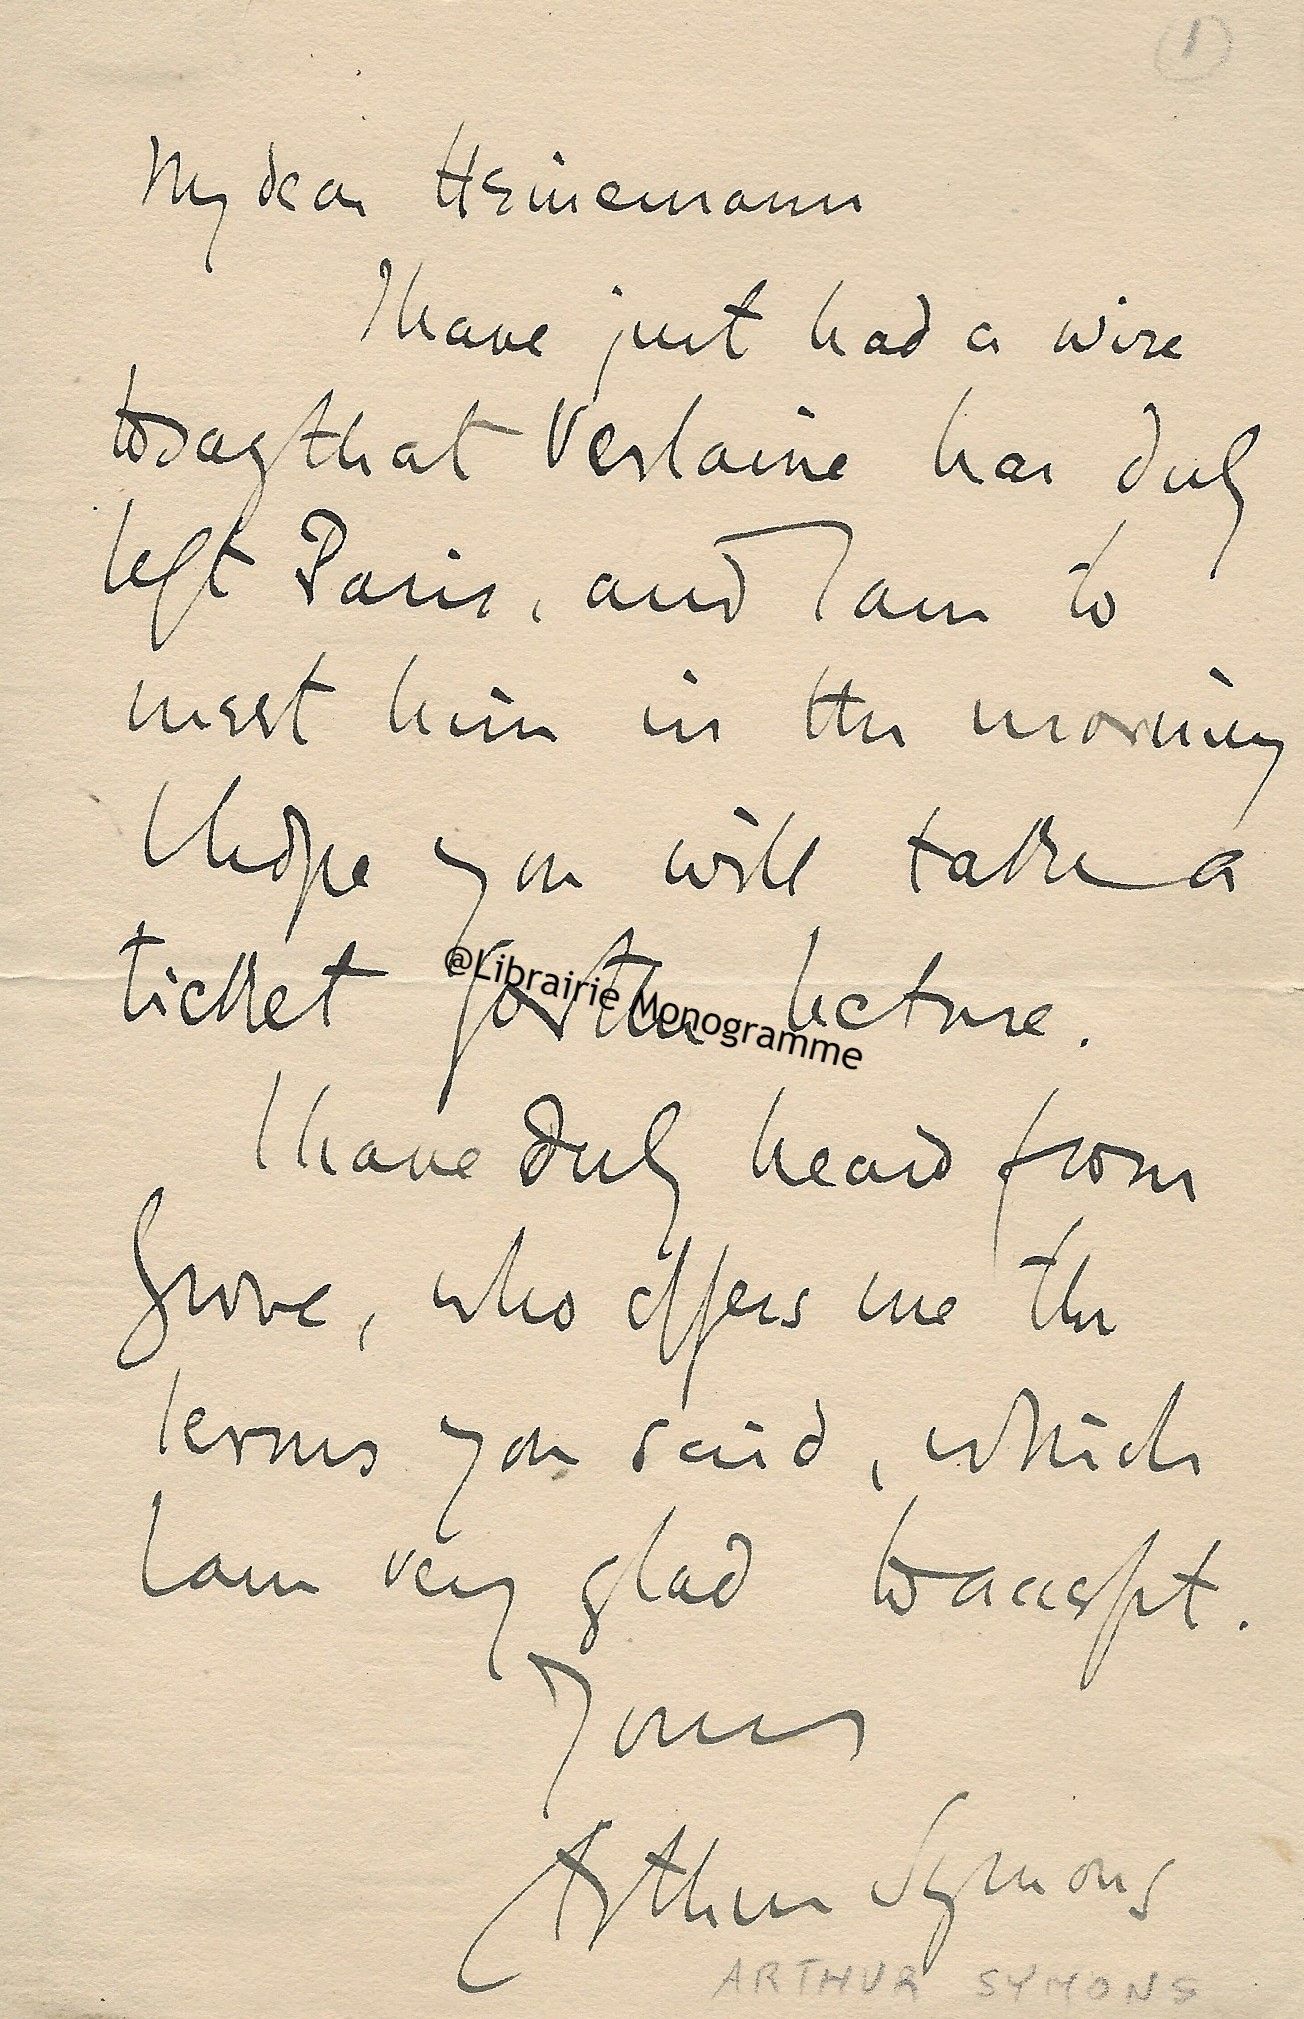 1
My dear Heinemann
I have just had a wire
to say that Verlaine has duly
left Paris, and I am to
meet him in the morning
I hope you will take a
ticket for the lecture.
@Librairie Monogramme
I have duly heard from
Grove, who offers me the
terms you said, which
I am very glad to accept.
Yours
Arthur Symons
ARTHUR SYMONS